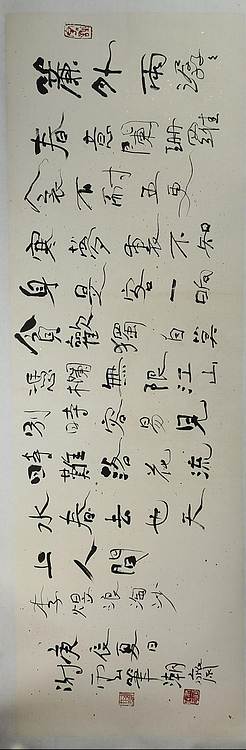 簾外雨潺潺
春意闌珊羅
衾不耐五更
寒夢裏不知
身是客一晌
貪歡獨自莫
憑欄無限江山
別時容易見
時難落花流
水春去也天
上人間
李煜浪淘沙
庚辰夏日
謝雲筆潮齋